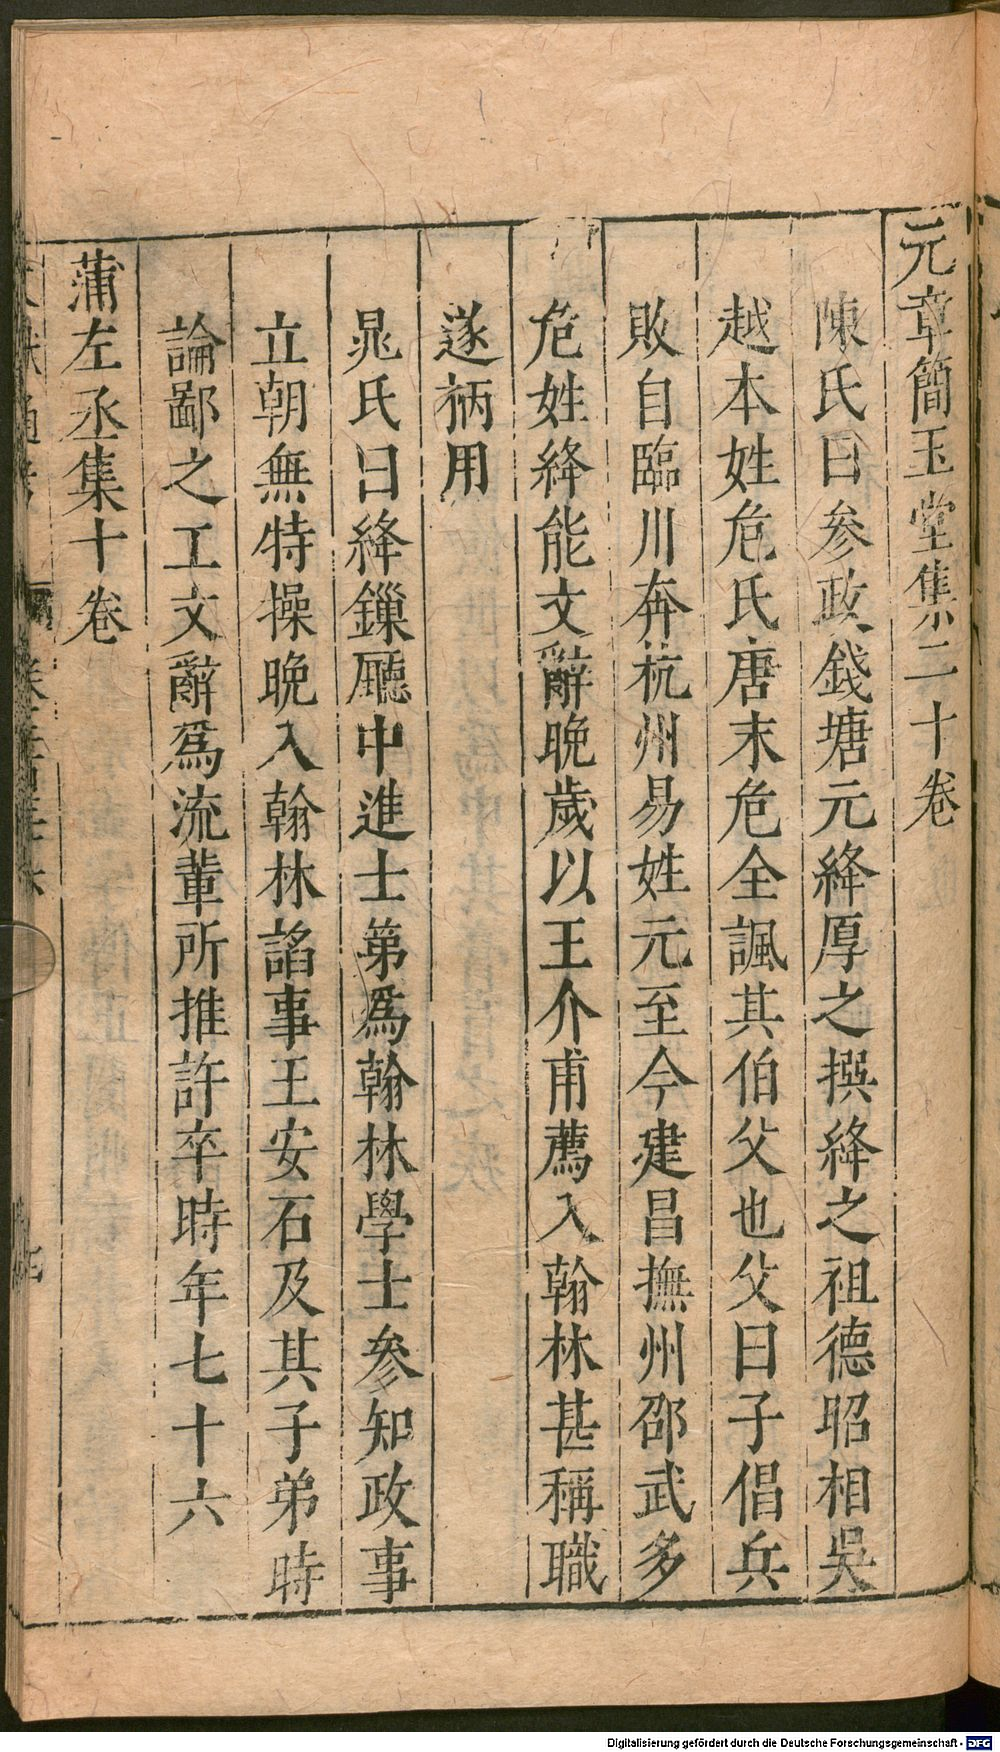 元章簡玉堂集二十卷
陳氏曰参政錢塘元絳厚之撰絳之祖德昭相吳
越本姓危氏唐末危全諷其伯父也父曰子倡兵
敗自臨川奔杭州易姓元至今建昌撫州邵武多
危姓絳能文辭晚歲以王介甫薦入翰林甚稱職
遂柄用
晁氏曰絳鏁廳中進士第爲翰林學士参知政事
立朝無特操晚入翰林諂事王安石及其子弟時
論鄙之工文辭爲流輩所推許卒時年七十六
蒲左丞集十卷
Digitalisierung gefördert durch die Deutsche Forschungsgemeinschaft - DFG